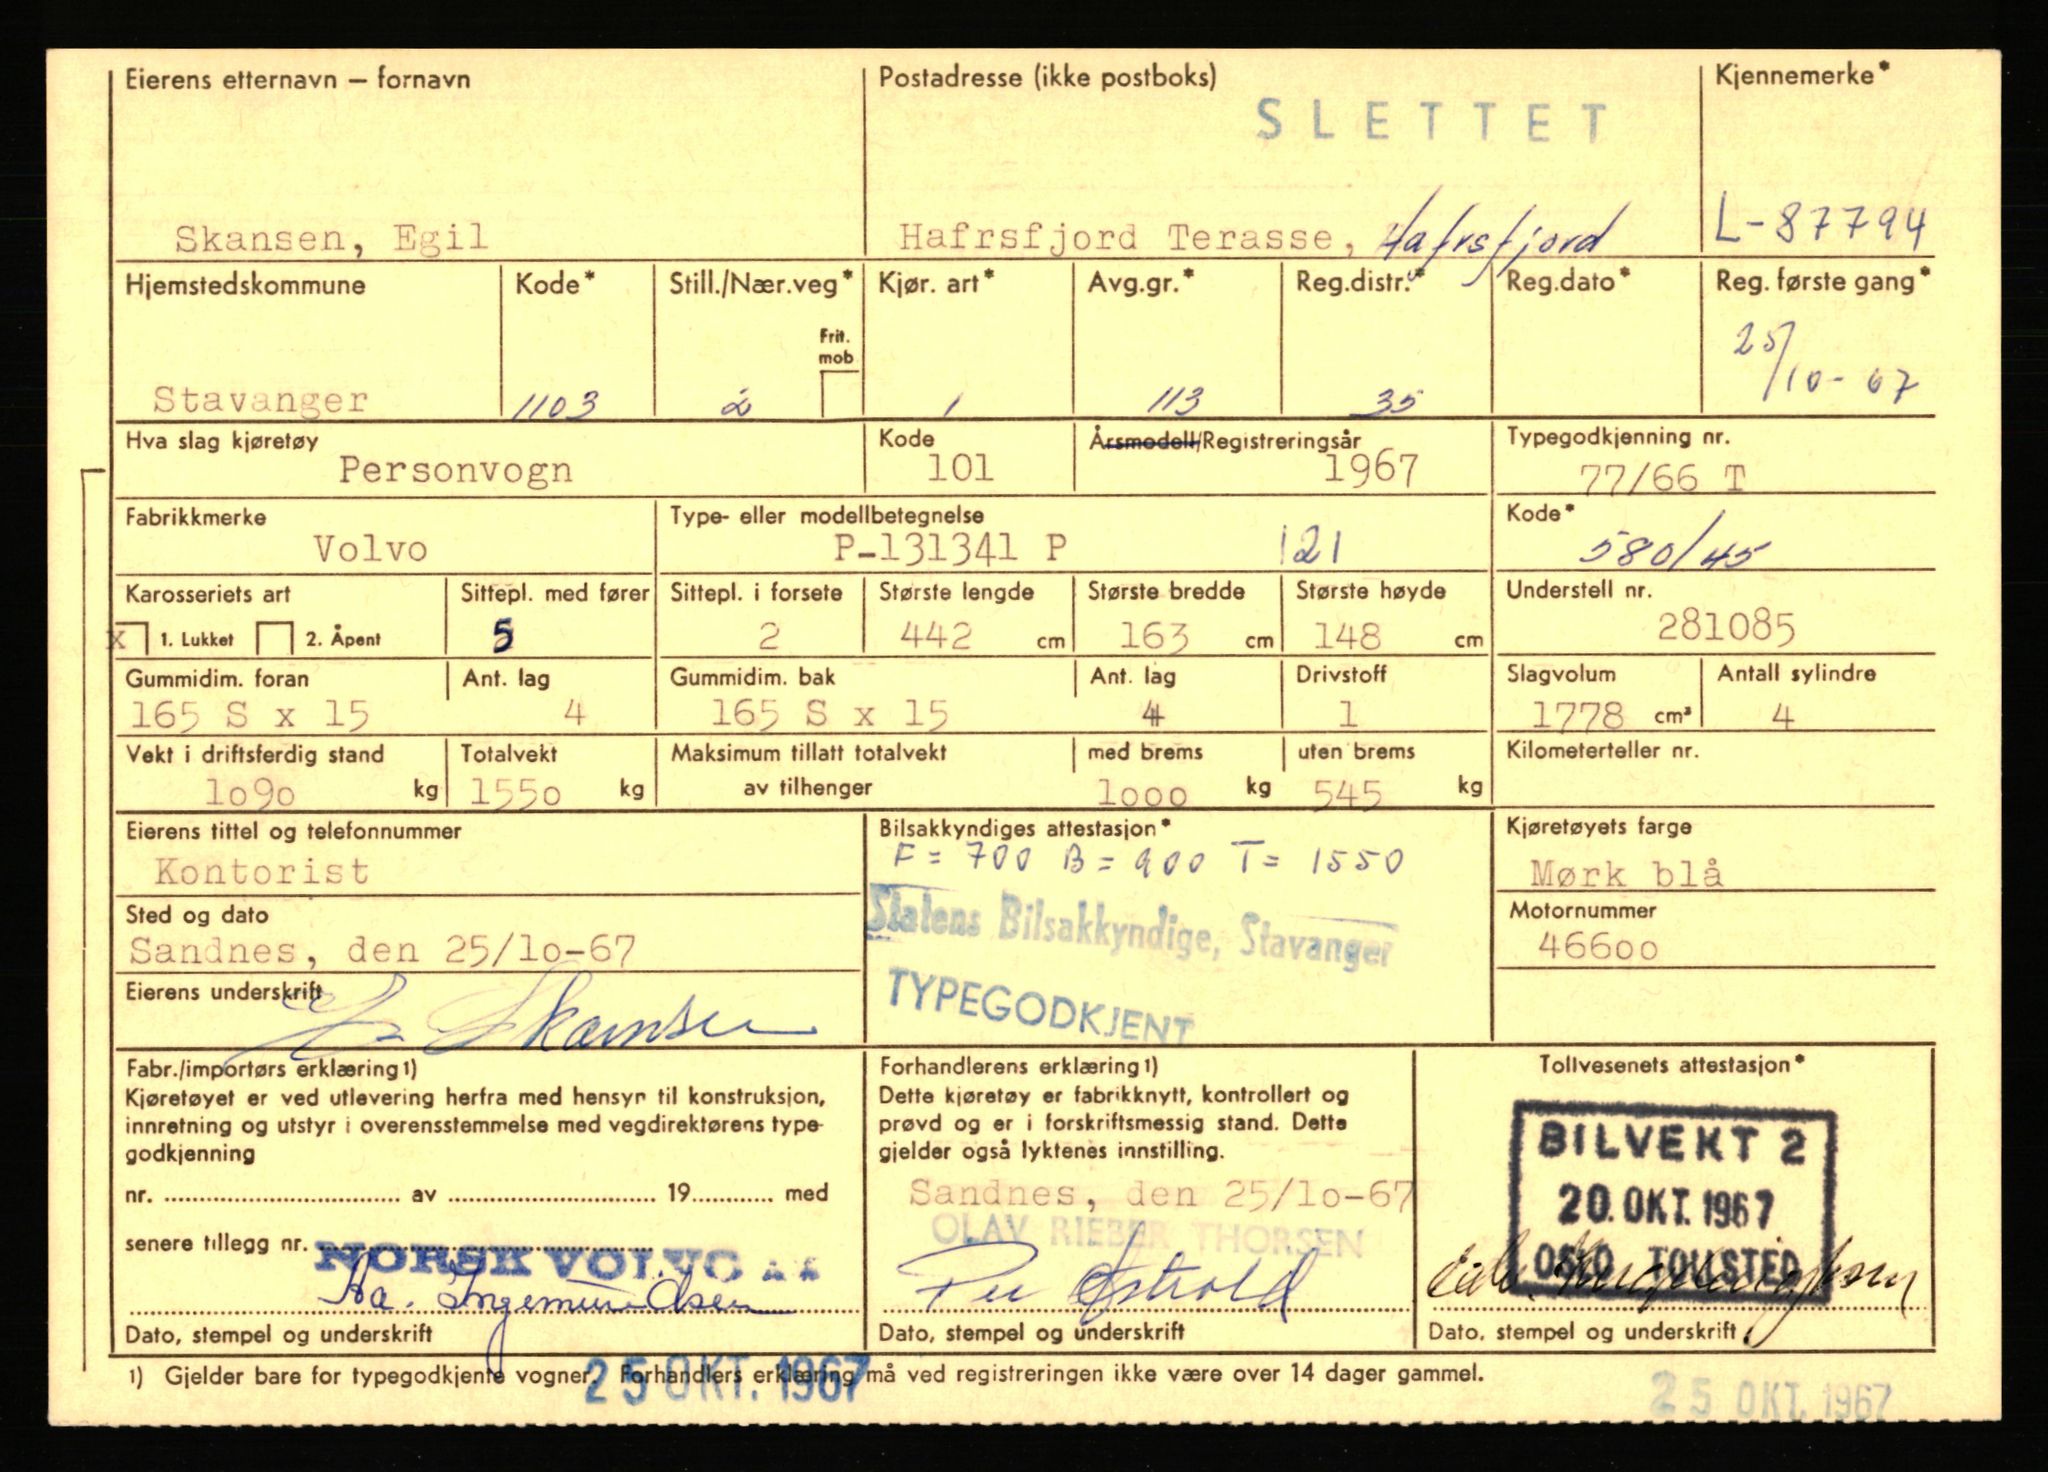 Eierens etternavn — fornavn
Postadresse (ikke postboks)
Kjennemerke*
SLETTET
Skansen, Egil
Hafrsfjord Terasse, Hafrsfjord
L-87794
Hjemstedskommune
Kode*
Still./Nær.veg*
Kjør. art*
Avg.gr.*
Reg.distr.*
Reg.dato*
Reg. første gang*
Frit.
mob
25/10-67
Stavanger
1103
2
1
113
35
Hva slag kjøretøy
Kode
Årsmodell/Registreringsår
Typegodkjenning nr.
Personvogn
101
1967
77/66 T
Fabrikkmerke
Type- eller modellbetegnelse
Kode*
Volvo
P-131341 P
121
580/45
Karosseriets art
Sittepl. med fører
Sittepl. i forsete
Største lengde
Største bredde
Største høyde
Understell nr.
x 1. Lukket
2. Åpent
5
2
442 cm
163 cm
148 cm
281085
Gummidim. foran
Ant. lag
Gummidim. bak
Ant. lag
Drivstoff
Slagvolum
Antall sylindre
165 S x 15
4
165 S x 15
4
1
1778 cm³
4
Vekt i driftsferdig stand
Totalvekt
Maksimum tillatt totalvekt
med brems
uten brems
Kilometerteller nr.
1090 kg
1550 kg
av tilhenger
1000 kg
545 kg
Eierens tittel og telefonnummer
Bilsakkyndiges attestasjon*
Kjøretøyets farge
Kontorist
F = 700 B = 900 T = 1550
Mørk blå
Sted og dato
Statens Bilsakkyndige, Stavanger
Motornummer
Sandnes, den 25/10-67
46600
Eierens underskrift
E. Skansen
TYPEGODKJENT
Fabr./importørs erklæring 1)
Kjøretøyet er ved utlevering herfra med hensyn til konstruksjon,
innretning og utstyr i overensstemmelse med vegdirektørens type-
godkjenning
nr. .......... av .......... 19.......... med
senere tillegg nr.
NORSK VOLVO A/S
Aa. Ingemundsen
Dato, stempel og underskrift
Forhandlerens erklæring 1)
Dette kjøretøy er fabrikknytt, kontrollert og
prøvd og er i forskriftsmessig stand. Dette
gjelder også lyktenes innstilling.
Sandnes, den 25/10-67
OLAV RIEBER THORSEN
Dato, stempel og underskrift
Tollvesenets attestasjon*
BILVEKT 2
20. OKT. 1967
OSLO TOLLSTED
Dato, stempel og underskrift
1) Gjelder bare for typegodkjente vogner. Forhandlers erklæring må ved registreringen ikke være over 14 dager gammel.
25 OKT. 1967
25 OKT. 1967